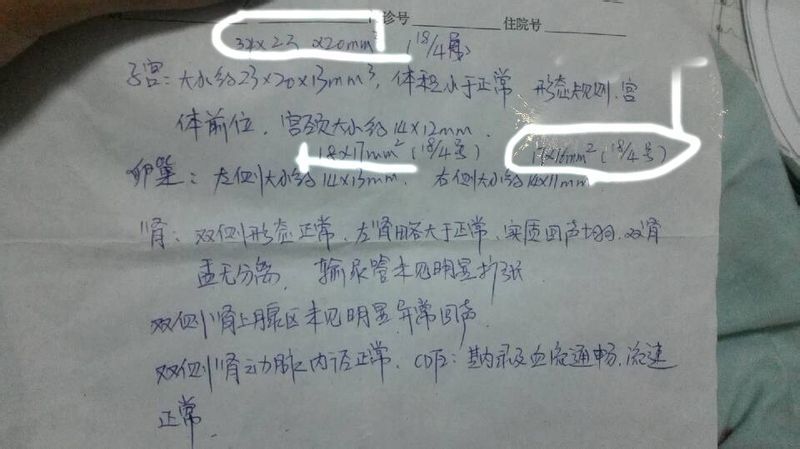 诊号 住院号
34×23×20mm³ (18/4号)
子宫：大小约23×20×13mm³，体积小于正常 形态规则，宫
体前位，宫颈大小约14×12mm．
18×17mm²(18/4号) 17×16mm²(18/4号)
卵巢：左侧大小约14×13mm．右侧大小约14×11mm．
肾：双侧形态正常．左肾略大于正常．实质回声均匀．双肾
盂无分离．输尿管未见明显扩张
双侧肾上腺区未见明显异常回声．
双侧肾动脉内径正常．CDFI：
血流通畅．流速
正常．